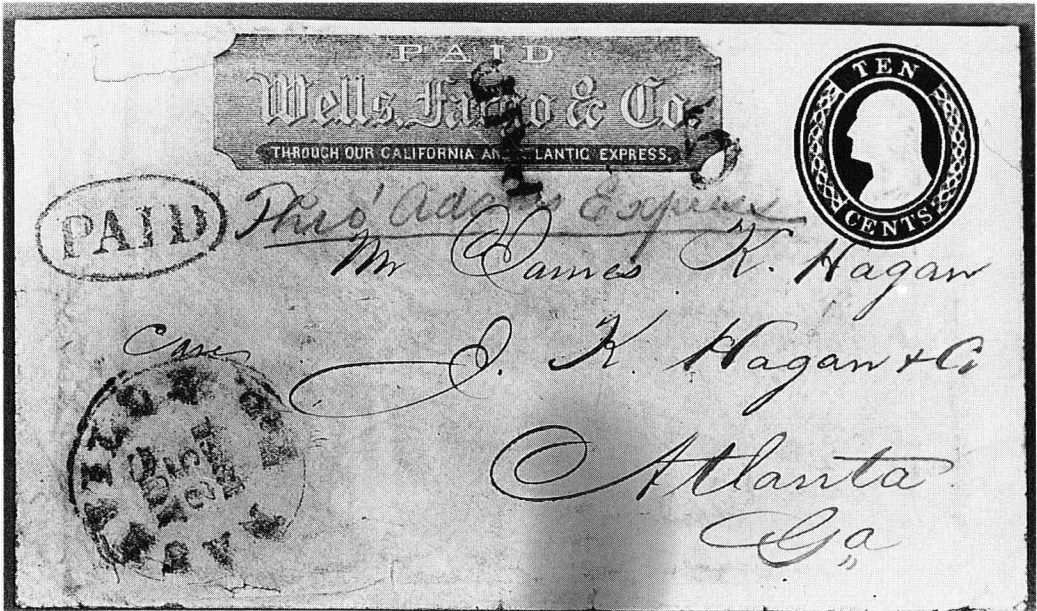 PAID
Wells, Fargo & Co.
THROUGH OUR CALIFORNIA AND ATLANTIC EXPRESS.
TEN
CENTS
PAID
Thro' Adams Express
Mr James K. Hagan
Care
J. K. Hagan & Co
Atlanta
Ga